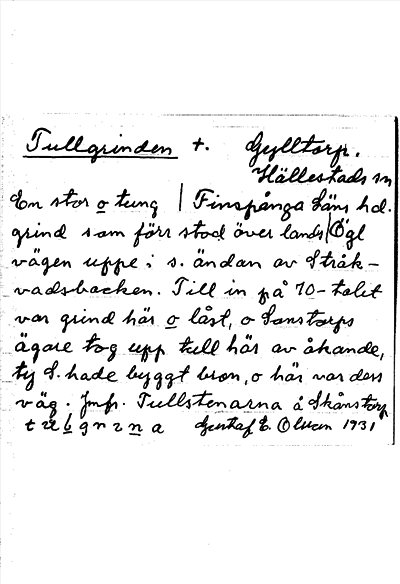 Tullgrinden +. Gylltorp.
Hällestads sn
En stor o tung | Finspånga läns hd.
grind som förr stod över lands| Ögl
vägen uppe i s. ändan av Stråk-
vadsbacken. Till in på 70-talet
var grind här o låst, o Sanstorps
ägare tog upp tull här av åkande,
ty S. hade byggt bron, o här var ders
väg. Jmfr. Tullstenarna å Skånstorp
Gustaf E. Olsson 1931